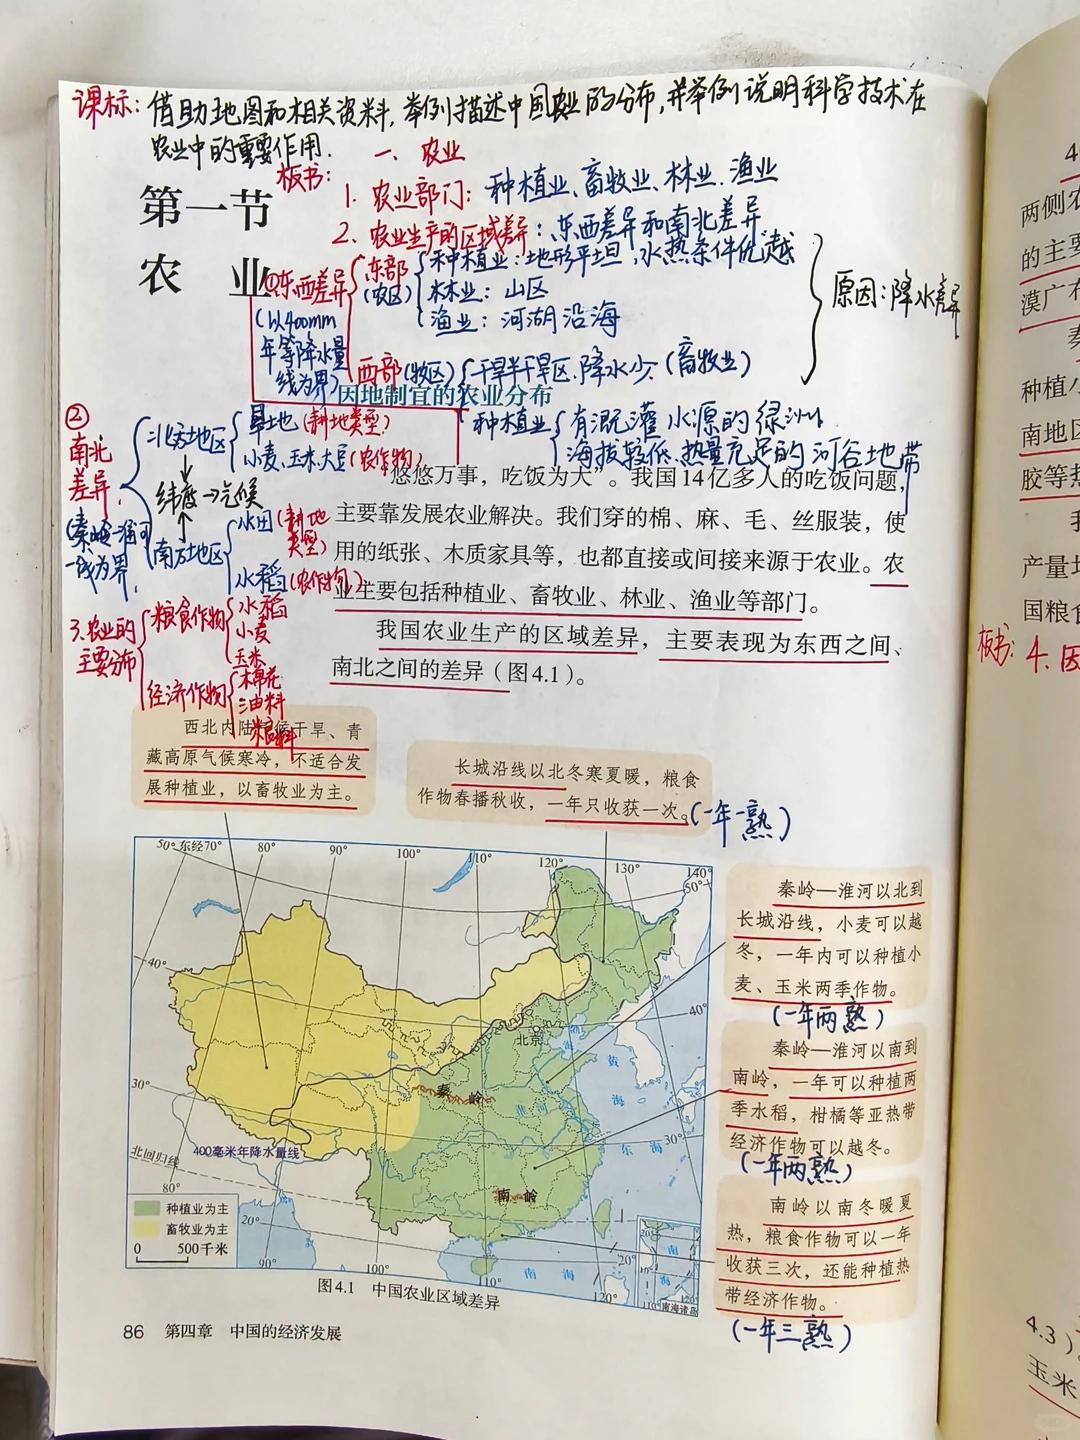 课标：借助地图和相关资料，举例描述中国农业的分布，并举例说明科学技术在
农业中的重要作用.
板书：
一、农业
1. 农业部门：种植业、畜牧业、林业、渔业
2. 农业生产的区域差异：东西差异和南北差异
第一节
农 业
①东西差异
(以400mm
年等降水量
线为界)
东部
(农区)
种植业：地形平坦，水热条件优越
林业：山区
渔业：河湖沿海
西部(牧区)
干旱半干旱区.降水少.(畜牧业)
种植业
有灌溉水源的绿洲
海拔较低、热量充足的河谷地带
原因：降水差异
因地制宜的农业分布
②
南北
差异
(秦岭-淮河
一线为界.
北方地区
旱地(耕地类型)
小麦、玉米大豆(农作物)
纬度→气候
南方地区
水田(耕地
类型)
水稻(农作物)
3.农业的
主要分布
粮食作物
水稻
小麦
玉米
经济作物
棉花
油料
糖料
“悠悠万事，吃饭为大”。我国14亿多人的吃饭问题，
主要靠发展农业解决。我们穿的棉、麻、毛、丝服装，使
用的纸张、木质家具等，也都直接或间接来源于农业。农
业主要包括种植业、畜牧业、林业、渔业等部门。
我国农业生产的区域差异，主要表现为东西之间、
南北之间的差异（图4.1）。
西北内陆气候干旱、青
藏高原气候寒冷，不适合发
展种植业，以畜牧业为主。
长城沿线以北冬寒夏暖，粮食
作物春播秋收，一年只收获一次。
(一年一熟)
秦岭—淮河以北到
长城沿线，小麦可以越
冬，一年内可以种植小
麦、玉米两季作物。
(一年两熟)
秦岭—淮河以南到
南岭，一年可以种植两
季水稻，柑橘等亚热带
经济作物可以越冬。
(一年两熟)
南岭以南冬暖夏
热，粮食作物可以一年
收获三次，还能种植热
带经济作物。
(一年三熟)
50° 东经70° 80° 90° 100° 110° 120° 130° 140°
50°
40°
40°
30°
30°
北回归线
80°
20°
20°
90°
100°
110°
120°
北京
渤
海
黄
海
秦 岭
淮 河
东 海
400毫米年降水量线
南 岭
南 海
种植业为主
畜牧业为主
0 500千米
20°
南
海
110°
120°
南海诸岛
图4.1 中国农业区域差异
86 第四章 中国的经济发展
两侧农
的主要
漠广布
种植小
南地区
胶等热
产量均
国粮食
板书：
4. 因
4.3）
玉米